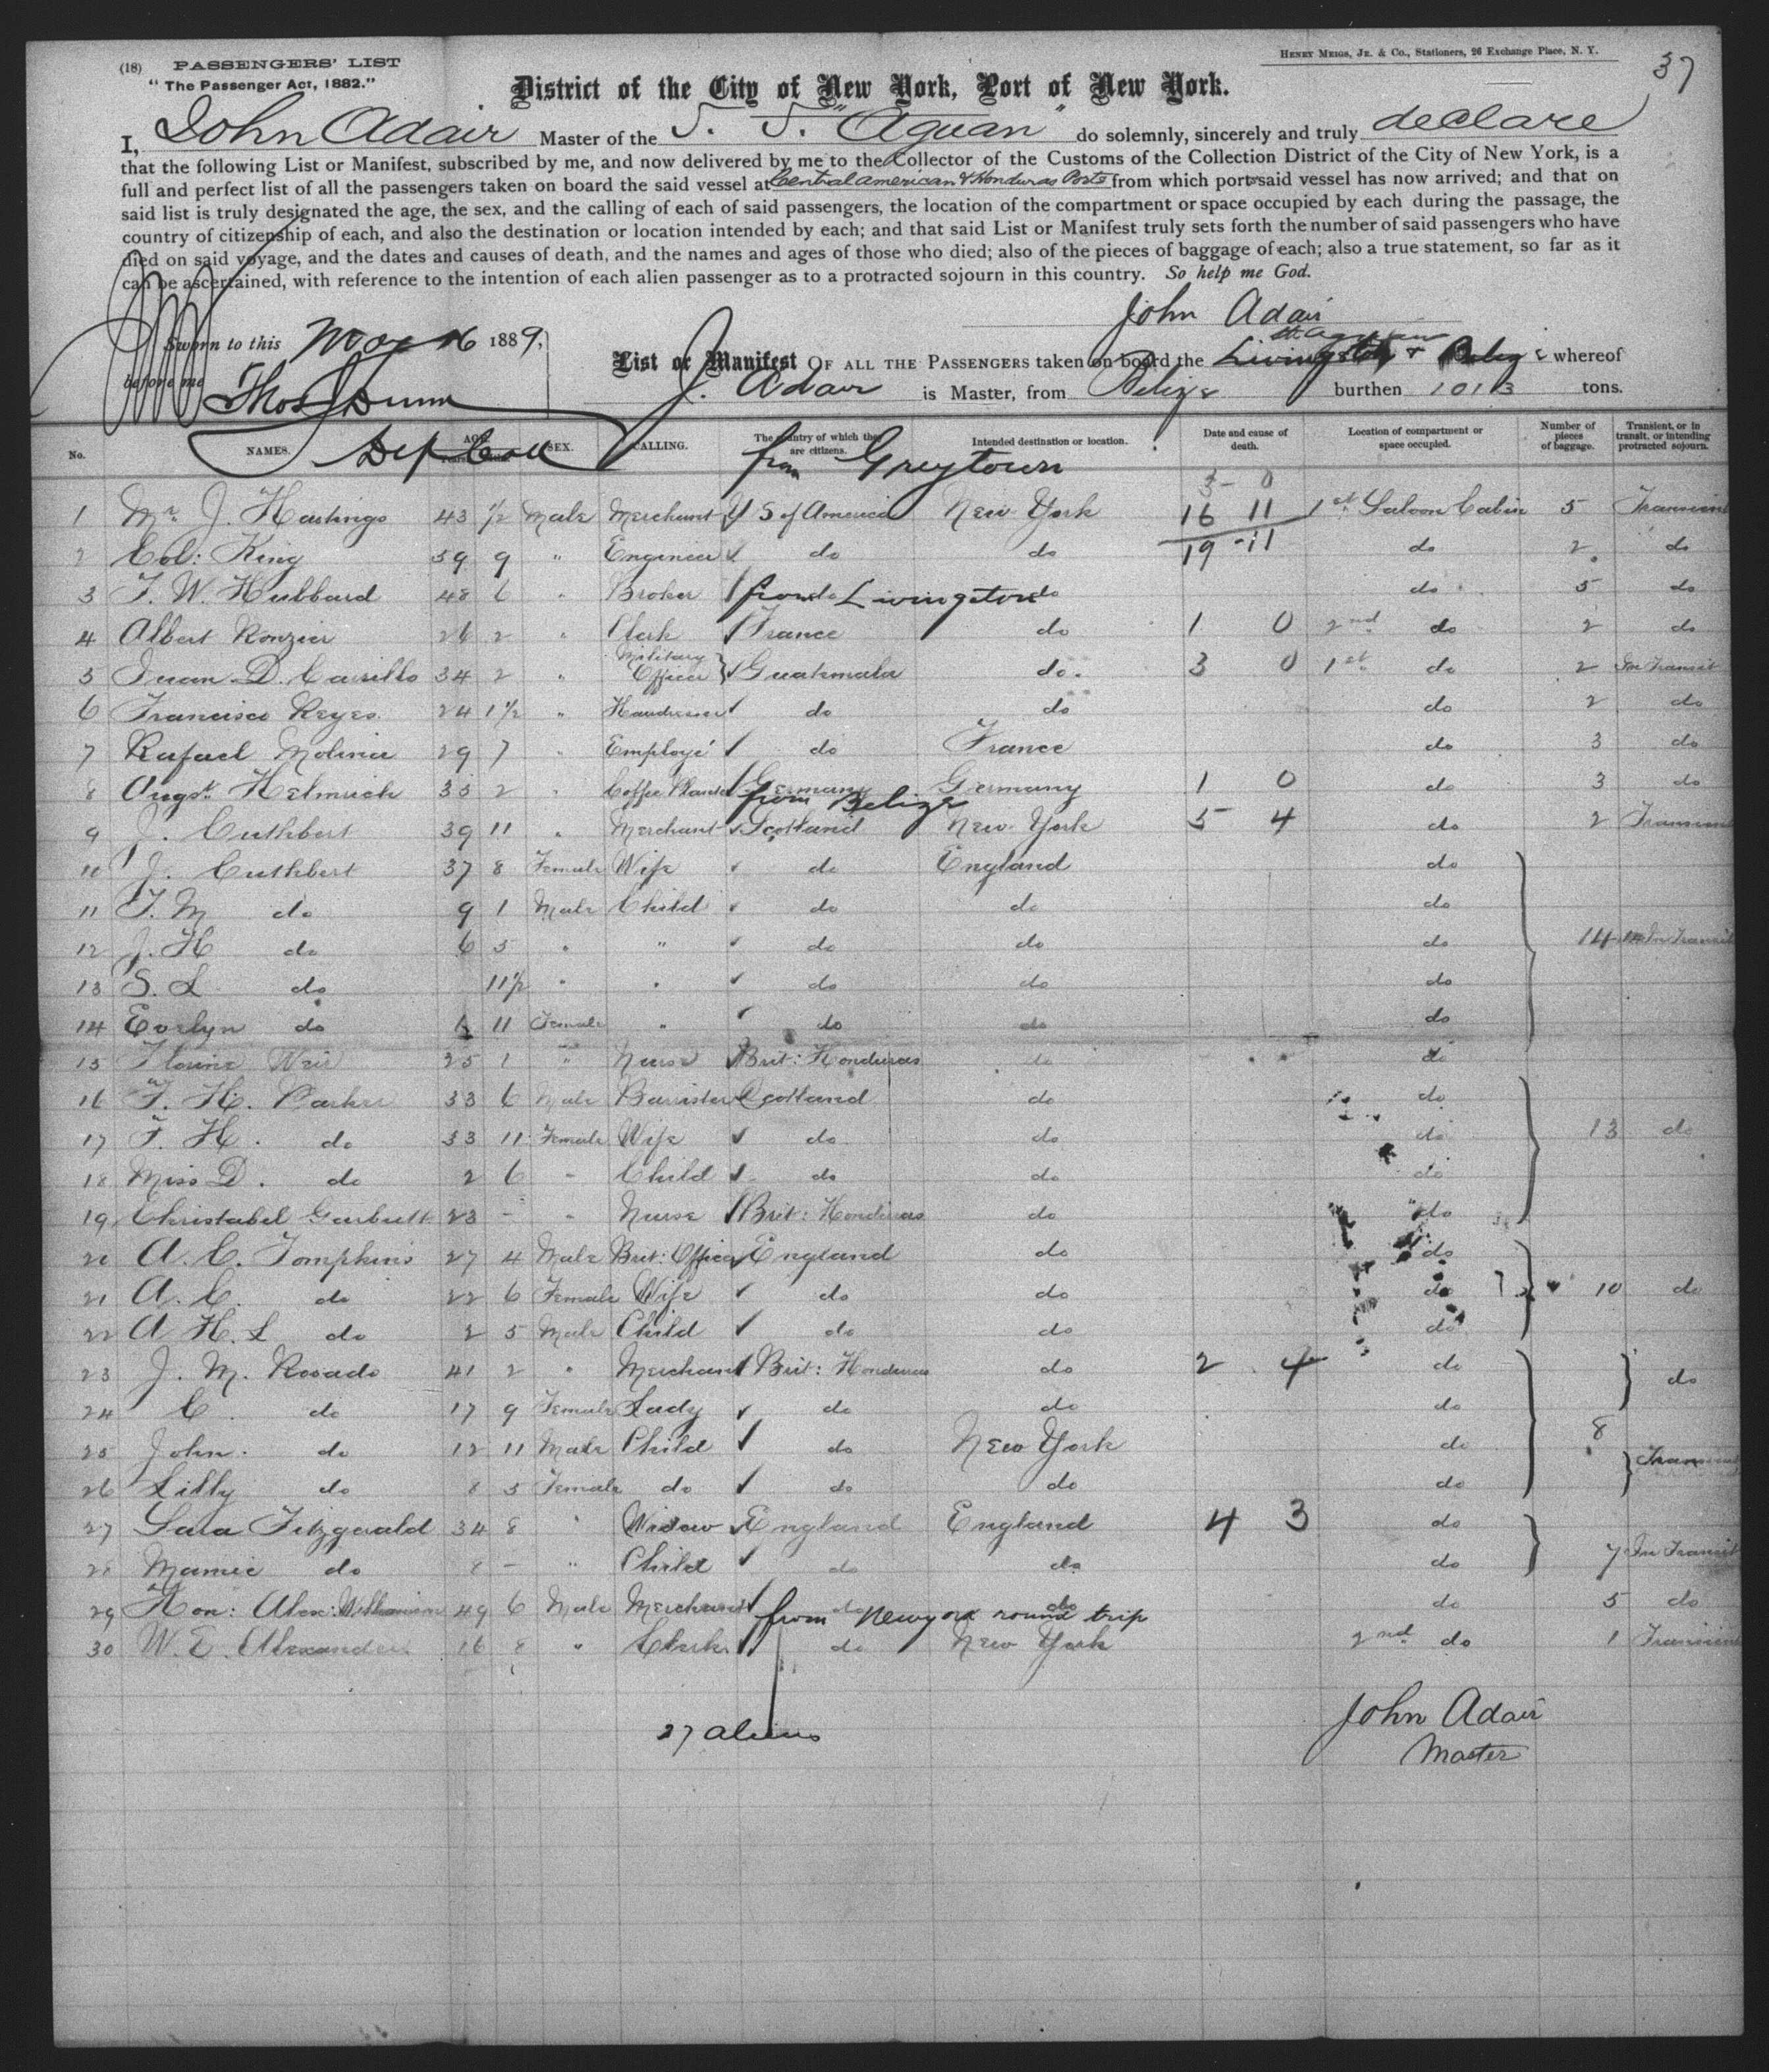 (18) PASSENGERS' LIST
"The Passenger Act, 1882."
HENRY MEIGS, JR. & CO., Stationers, 26 Exchange Place, N. Y.
37
District of the City of New York, Port of New York.
I, John Adair Master of the S. S. "Aguan" do solemnly, sincerely and truly declare
that the following List or Manifest, subscribed by me, and now delivered by me to the Collector of the Customs of the Collection District of the City of New York, is a
full and perfect list of all the passengers taken on board the said vessel at Central american & Honduras Ports from which port said vessel has now arrived; and that on
said list is truly designated the age, the sex, and the calling of each of said passengers, the location of the compartment or space occupied by each during the passage, the
country of citizenship of each, and also the destination or location intended by each; and that said List or Manifest truly sets forth the number of said passengers who have
died on said voyage, and the dates and causes of death, and the names and ages of those who died; also of the pieces of baggage of each; also a true statement, so far as it
can be ascertained, with reference to the intention of each alien passenger as to a protracted sojourn in this country. So help me God.
John Adair
Sworn to this May 16 1889,
before me
Thos Dunn
Dep Coll
List or Manifest OF ALL THE PASSENGERS taken on board the Livingston & Belize whereof
J. Adair is Master, from Belize burthen 1013 tons.
No. NAMES. AGE. SEX. CALLING. The country of which they are citizens. Intended destination or location. Date and cause of death. Location of compartment or space occupied. Number of pieces of baggage. Transient, or in transit, or intending protracted sojourn.
from Greytown
3- 0
1 Mr. J. Hastings 43 1/2 Male Merchant U S of America New York 16 11 1st Saloon Cabin 5 Transient
2 Col: King 39 9 " Engineer do do 19-11 do 2 do
3 F. W. Hubbard 48 6 " Broker do do do 5 do
from Livingston
4 Albert Ronzier 26 2 " Clerk France do 1 0 2nd do 2 do
5 Juan D. Carrillo 34 2 " Military Officer } Guatemala do 3 0 1st do 2 In Transit
6 Francisco Reyes 24 1 1/2 " do do do 2 do
7 Rafael Molina 29 7 " Employé do France do 3 do
8 Augst. Helmrich 35 2 " Coffee Planter Germany Germany 1 0 do 3 do
from Belize
9 J. Cuthbert 39 11 " Merchant Scotland New York 5 4 do 2 Transient
10 J. Cuthbert 37 8 Female Wife do England do
11 F. M do 9 1 Male Child do do do
12 J. H do 6 5 " " do do do 14 In Transit
13 S. L do 11 1/2 " " do do do
14 Evelyn do 11 Female " do do do
15 Weir 25 1 " Nurse Brit: Honduras do do
16 F. H. Parker 33 6 Male Barrister Scotland do do
17 F. H. do 33 11 Female Wife do do do 13 do
18 Miss D. do 2 6 " Child do do do
19 Christabel Garbutt 23 - " Nurse Brit: Honduras do do
20 A. C. Tompkins 27 4 Male Brit: Officer England do do
21 A. C. do 22 6 Female Wife do do do 10 do
22 A H. L do 2 5 Male Child do do do
23 J. M. Rosado 41 2 " Merchant Brit: Honduras do 2 4 do do
24 C. do 17 9 Female Lady do do do
25 John. do 12 11 Male Child do New York do 8
26 Lilly do 8 5 Female do do do do Transient
27 Sara Fitzgerald 34 8 " Widow England England 4 3 do
28 Mamie do 8 - " Child do do do 7 In Transit
29 Hon: Alex: Williamson 49 6 Male Merchant do do do 5 do
from Newyork round trip
30 W. E. Alexander 16 8 " Clerk do New York 2nd do 1 Transient
27 aliens
John Adair
Master